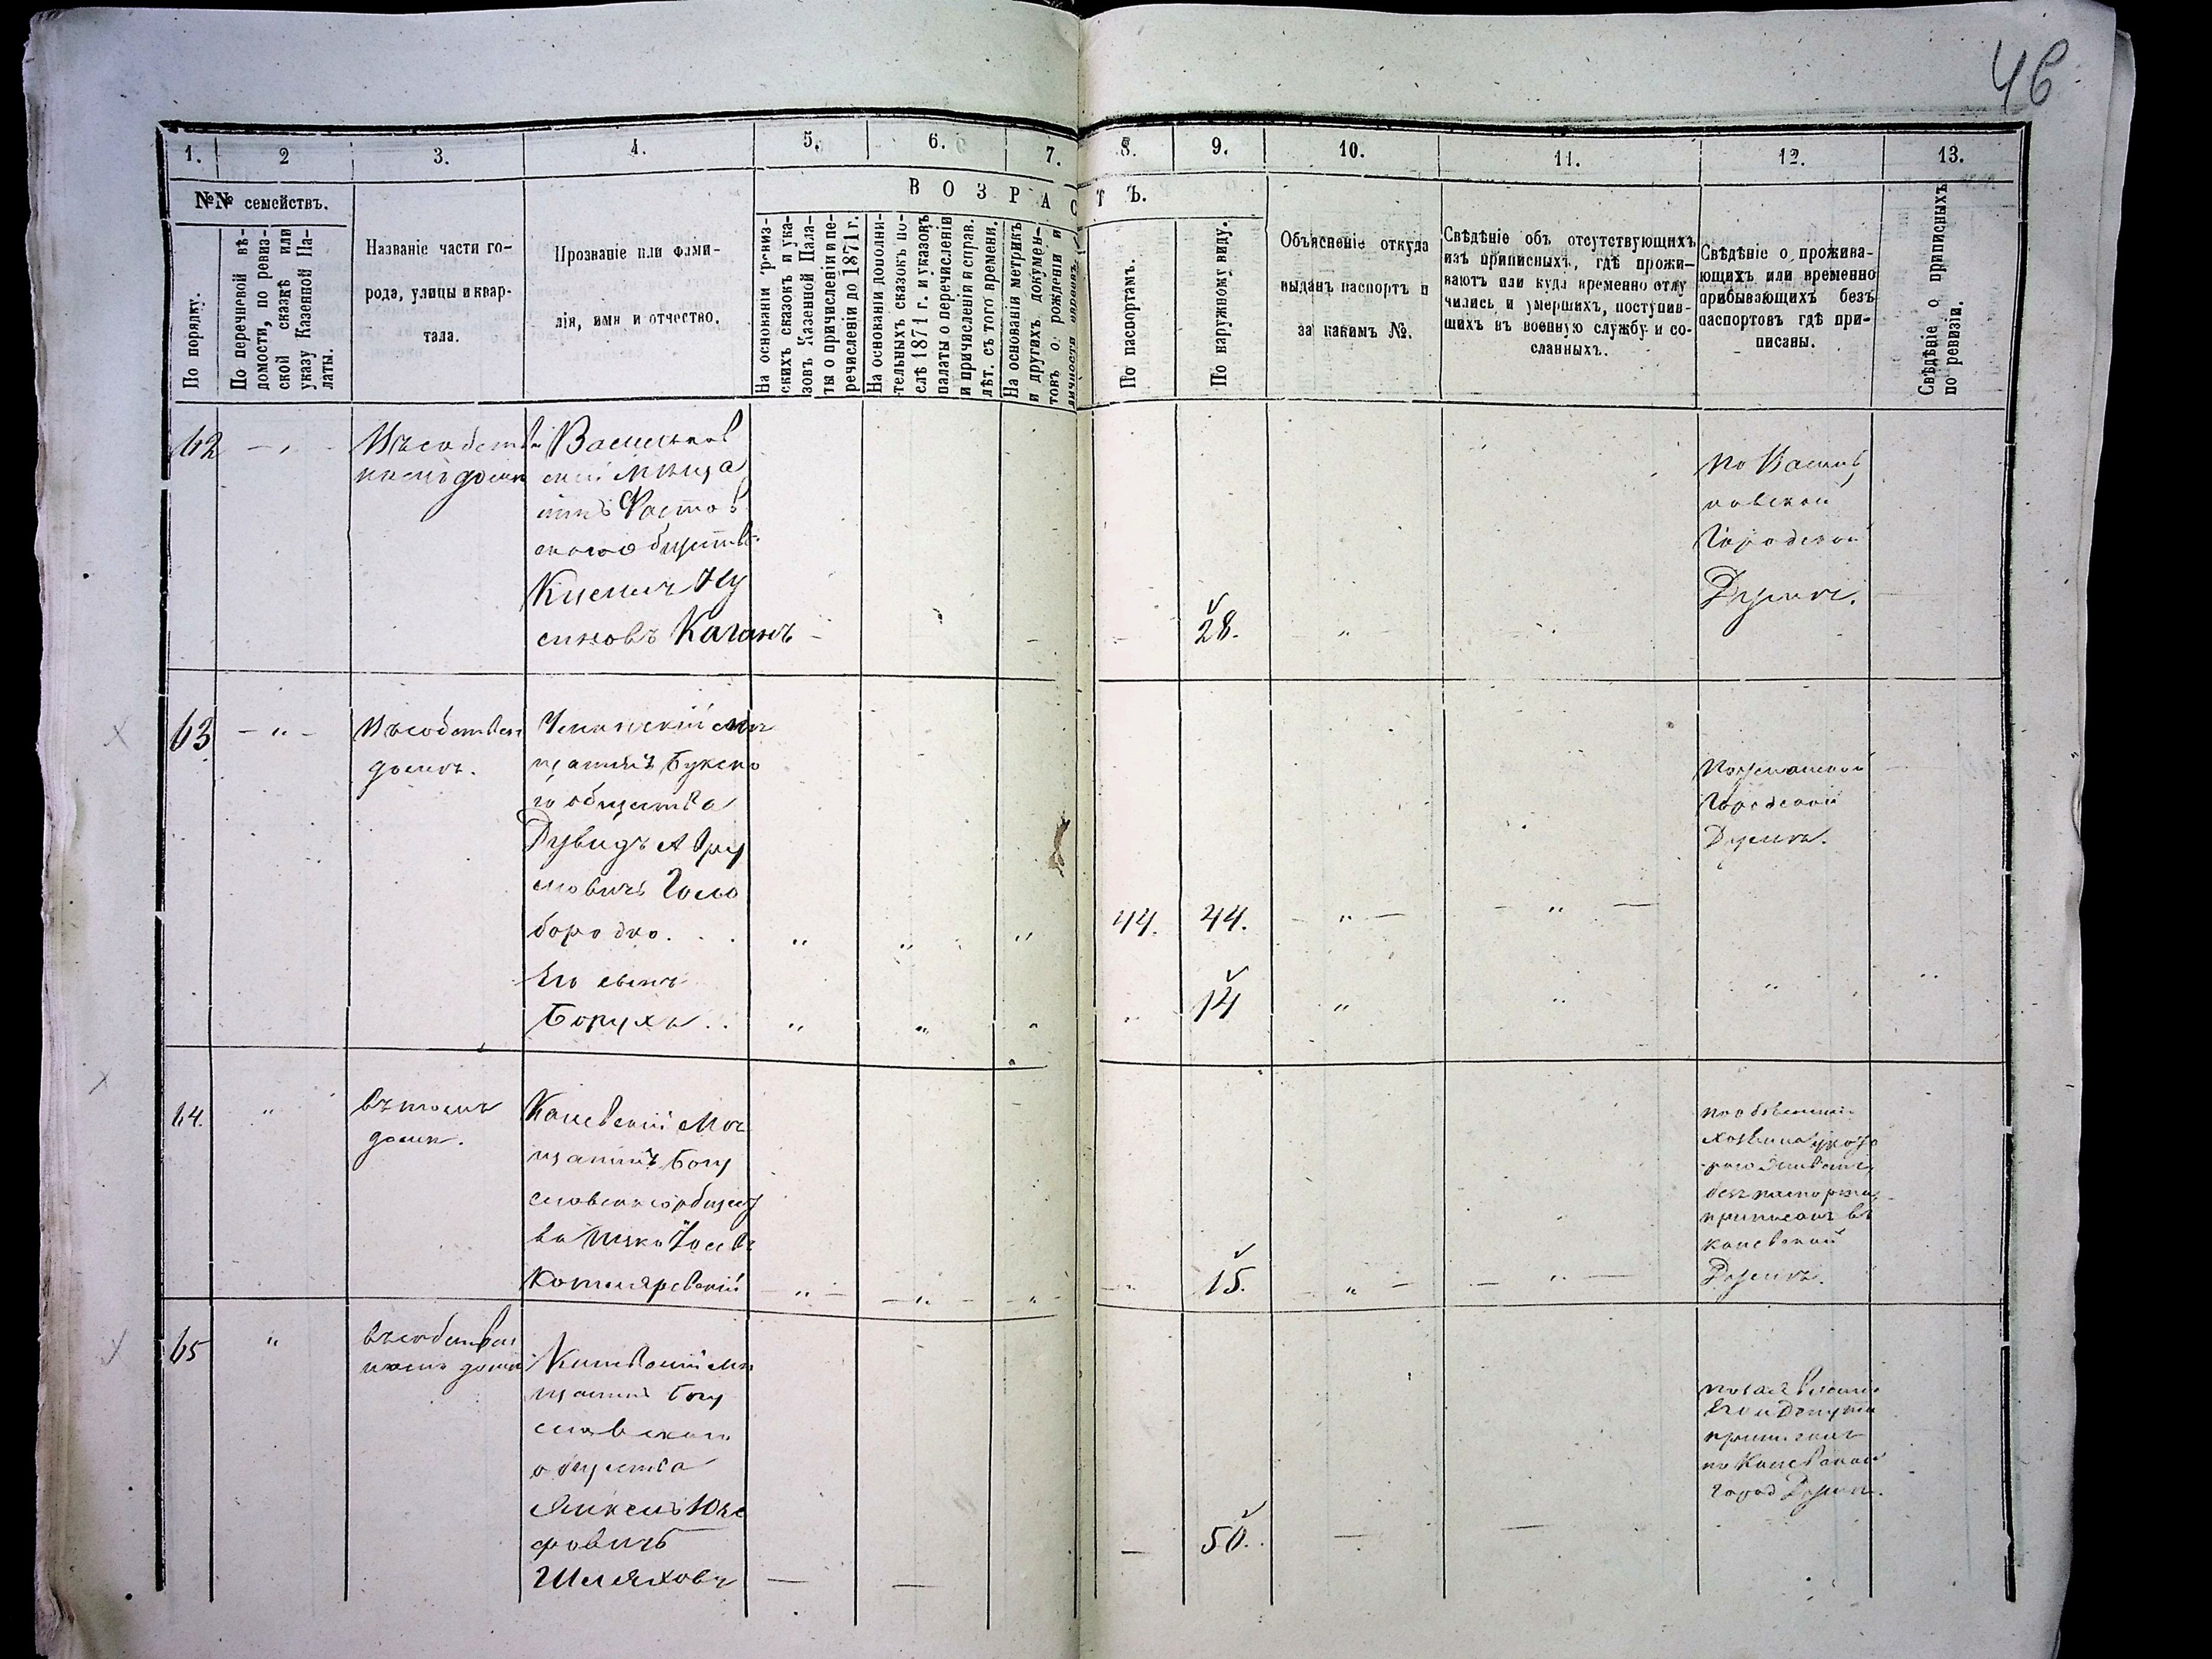 46
1. 2 3. 4. 5. 6. 7. 8. 9. 10. 11. 12. 13.
№№ семействъ.
По порядку.
По перечневой вѣ-
домости, по ревиз-
ской сказкѣ или
указу Казенной Па-
латы.
Названіе части го-
рода, улицы и квар-
тала.
Прозваніе или фами-
лія, имя и отчество.
ВОЗРАСТЪ.
На основаніи ревиз-
скихъ сказокъ и ука-
зовъ Казенной Пала-
ты о причисленіи и пе-
речисленіи до 1871 г.
На основаніи дополни-
тельныхъ сказокъ по-
слѣ 1871 г. и указовъ
палаты о перечисленіи
и причисленіи и справ.
лѣт. съ того времени.
На основаніи метрикъ
и другихъ докумен-
товъ о рожденіи и
личности справкъ.
По паспортамъ.
По наружному виду.
Объясненіе откуда
выданъ паспортъ и
за какимъ №.
Свѣдѣніе объ отсутствующихъ
изъ приписныхъ, гдѣ прожи-
ваютъ или куда временно отлу
чились и умершихъ, поступив-
шихъ въ военную службу и со-
сланныхъ.
Свѣдѣніе о прожива-
ющихъ или временно
прибывающихъ безъ
паспортовъ гдѣ при-
писаны.
Свѣдѣніе о приписныхъ
по ревизіи.
62 - „ - Въ собствен
номъ домѣ
Васильков
скій мѣща
нинъ Фастов
скаго обществ
Кисиль Ну
симовъ Каганъ
28. „
По Василь
ковской
Городской
Думѣ.
63 - „ - Въ собствен
домѣ.
Уманскій мѣ
щанинъ Букско
го общества
Дувидъ Авру
мовичъ Голо
бородко. . . „ „ „ 44. 44. - „ - - „ -
По Уманской
Городской
Думѣ.
Его сынъ
Борухъ . . „ „ „ „ 14 „ „ „ „
64. „ въ томъ
домѣ.
Каневскій Мѣ
щанинъ Богу
славскаго общест
ва Ицко Іосевъ
Котляревскій „ „ „ 15. „ „
по объявленію
хозяина у кото
раго
безъ паспорта,
приписанъ въ
Каневской
Думѣ.
65 „ въ собствен
номъ домѣ
Каневскій мѣ
щанинъ Богу
славскаго
общества
Янкель Юзе
фовичъ
Шляховъ — — — 50. — —
по заявленію
Его и Депутата
приписанъ
по Каневской
город Думѣ.